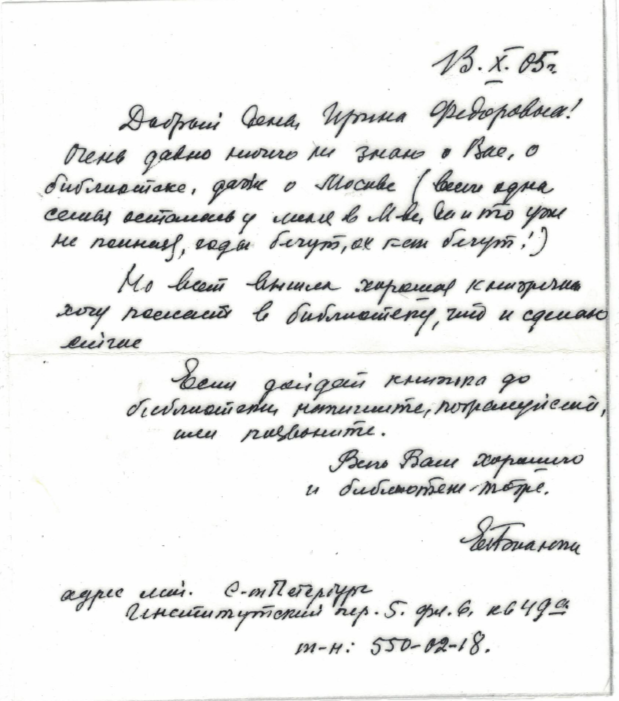 13.X.05г.
Добрый день, Ирина Федоровна!
Очень давно ничего не знаю о Вас, о
библиотеке, даже о Москве (всего одна
семья осталась у меня в М-ве, да и то уже
не полная, годы бегут, ах как бегут!)
Но вот вышла хорошая книжечка
хочу послать в библиотеку, что и сделаю
сейчас
Если дойдет книжка до
библиотеки напишите, пожалуйста,
или позвоните.
Всего Вам хорошего
и библиотеке тоже.
Е.Бианки
адрес мой. С-т Петербург
Институтский пер. 5. фл. 6, кв 49а
т-н: 550-02-18.